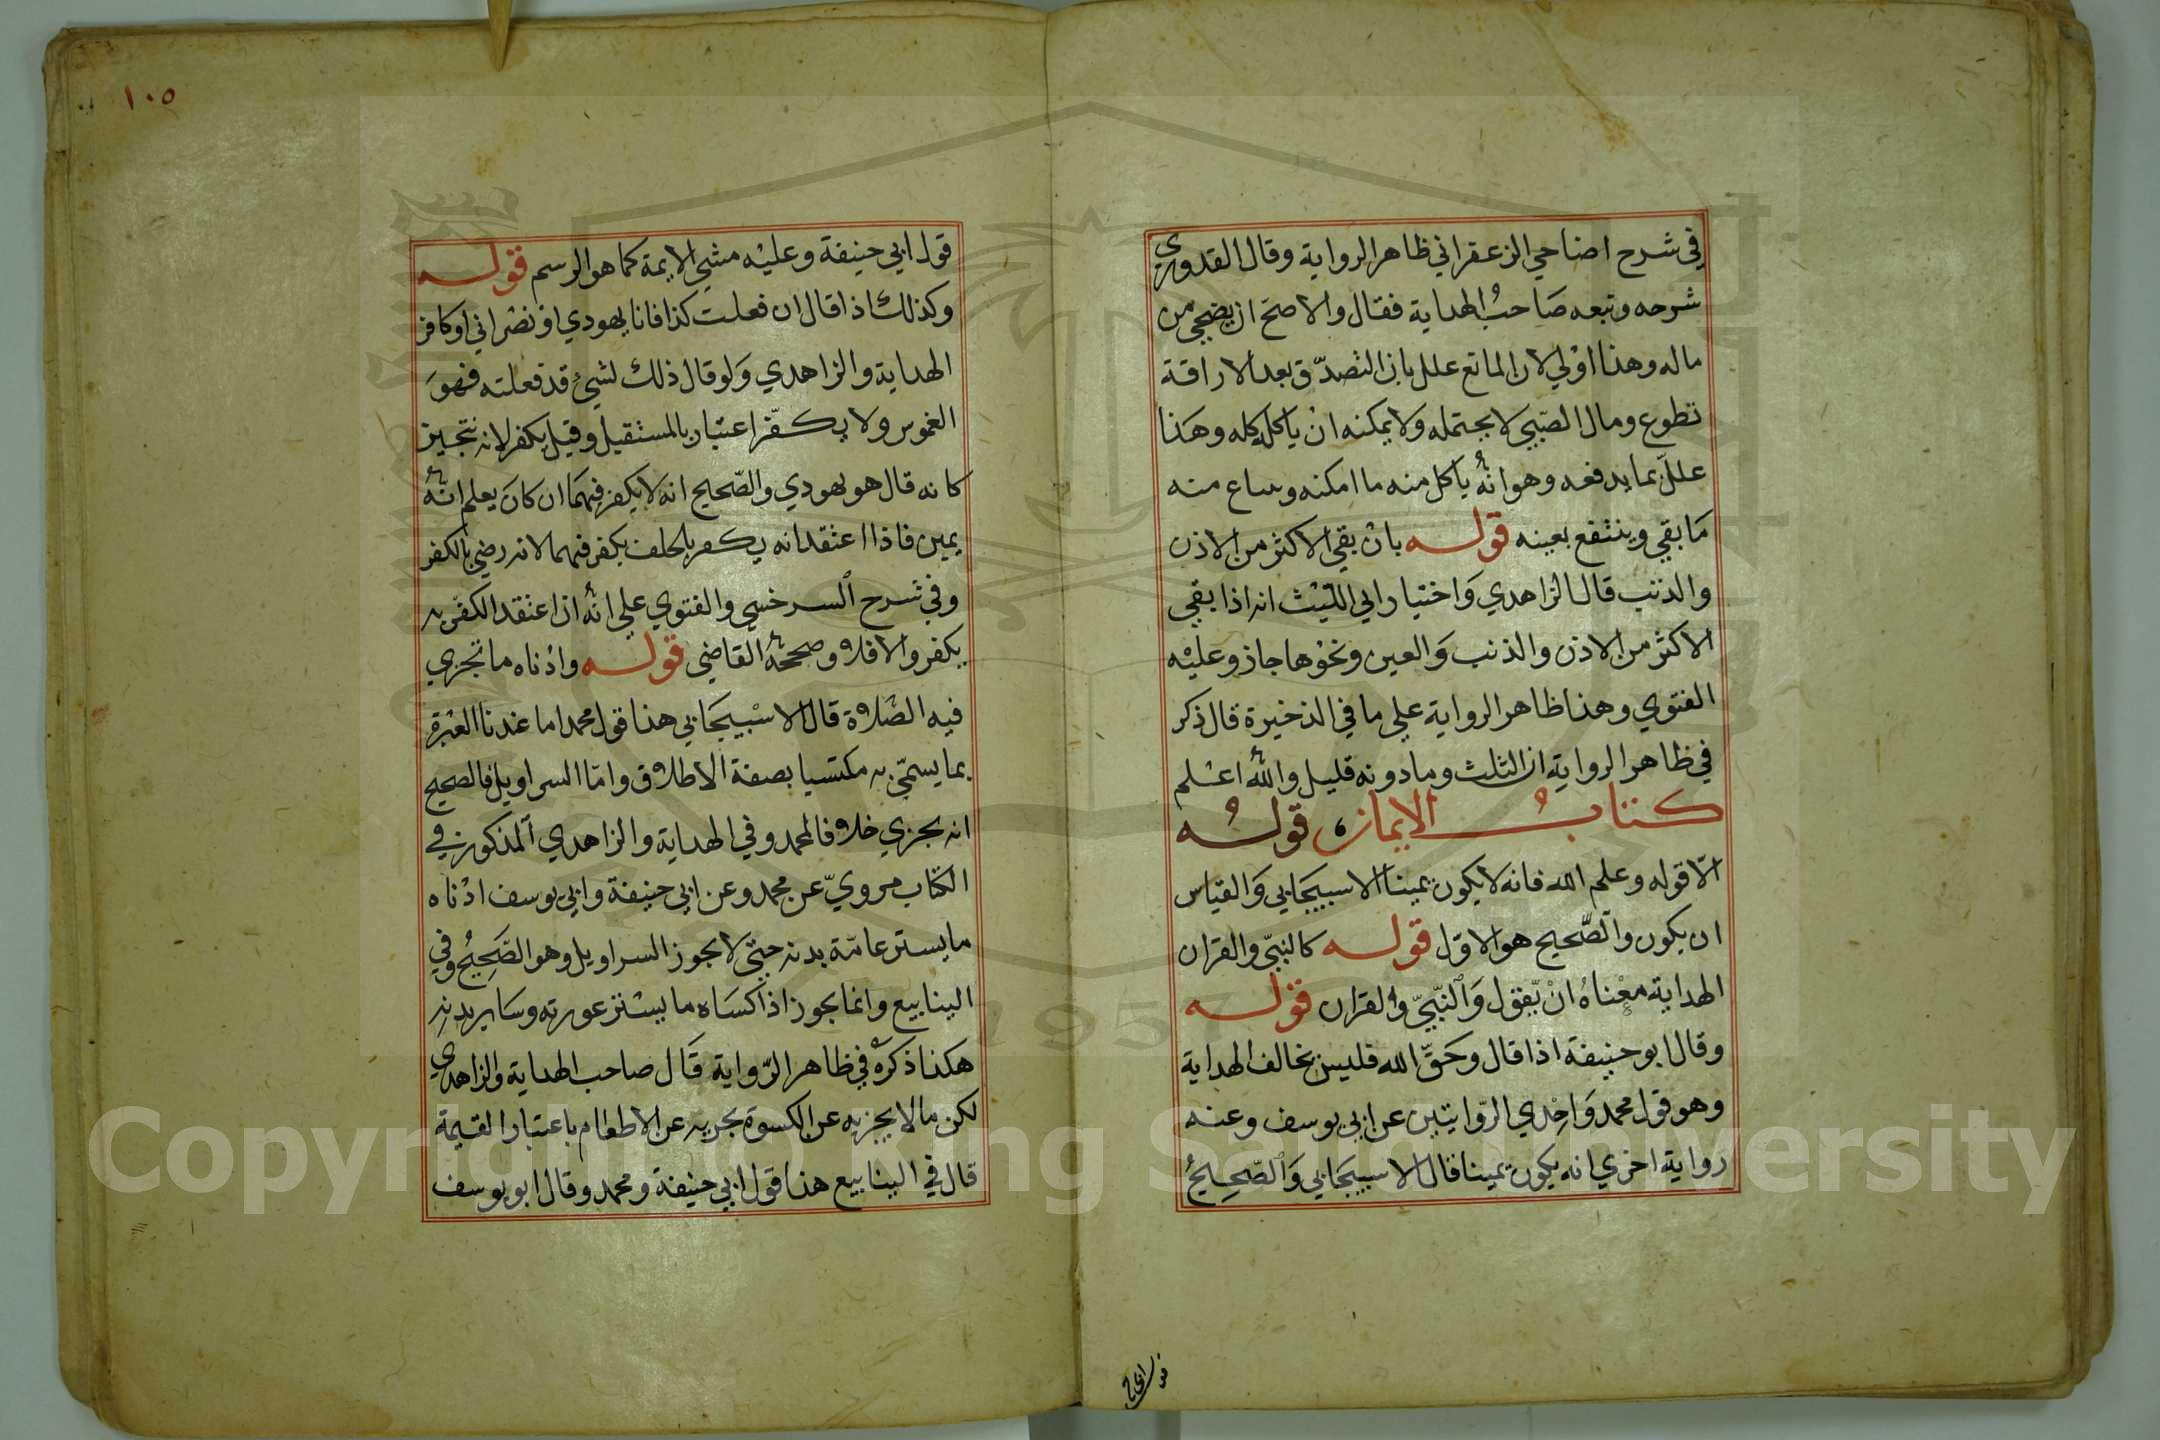 في شرح اضاحي الزعفراني ظاهر الرواية وقال القدوري
شرحه وتبعه صاحب الهداية فقال والاصح ان يضحي من
ماله وهذا اولي لان المانع علل بان التصدق بعد الاراقة
تطوع ومال الصبي لا يحتمله ولا يمكنه ان ياكل كله وهذا
علل بما يدفعه وهو انه ياكل منه ما امكنه ويباع منه
ما بقي وينتفع بعينه قوله بان بقي الاكثر من الاذن
والذنب قال الزاهدي واختيار ابي الليث انه اذا بقي
الاكثر من الاذن والذنب والعين ونحوها جاز وعليه
الفتوي وهذا ظاهر الرواية علي ما في الذخيرة قال ذكر
في ظاهر الرواية ان الثلث وما دونه قليل والله اعلم
كتاب الايمان قوله
الا قوله وعلم الله فانه لا يكون يمينا الاسبيجابي والقياس
ان يكون والصحيح هو الاول قوله كالنبي والقران
الهداية معناه ان يقول والنبي والقران قوله
وقال ابو حنيفة اذا قال وحق الله فليس بحالف الهداية
وهو قول محمد واحدي الروايتين عن ابي يوسف وعنه
رواية اخري انه يكون يمينا قال الاسبيجابي والصحيح
١٠٥
قول ابي حنيفة وعليه مشي الايمة كما هو الرسم قوله
وكذلك اذا قال ان فعلت كذا فانا يهودي او نصراني او كافر
الهداية والزاهدي ولو قال ذلك لشيء قد فعلته فهو
الغموس ولا يكفر اعتبارا بالمستقبل وقيل يكفر لانه تنجيز
كانه قال هو يهودي والصحيح انه لا يكفر فيهما ان كان يعلم انه
يمين فاذا اعتقد انه يكفر بالحلف يكفر فيهما لانه رضي بالكفر
وفي شرح السرخسي والفتوي علي انه ان اعتقد الكفر به
يكفر والا فلا وصححه القاضي قوله وادناه ما تجزي
فيه الصلاة قال الاسبيجابي هذا قول محمد اما عندنا العبرة
بما يسمي به مكتسيا بصفة الاطلاق واما السراويل فالصحيح
انه يجزي خلافا لمحمد وفي الهداية والزاهدي المذكور في
الكتاب مروي عن محمد وعن ابي حنيفة وابي يوسف ادناه
ما يستر عامة بدنه حتي لا يجوز السراويل وهو الصحيح وفي
الينابيع وانما يجوز اذا كساه ما يستر عورته وساير بدنه
هكذا ذكره في ظاهر الرواية قال صاحب الهداية والزاهدي
لكن ما لا يجزيه عن الكسوة يجزيه عن الاطعام باعتبار القيمة
قال في الينابيع هذا قول ابي حنيفة ومحمد وقال ابو يوسف
Copyright © King Saud University